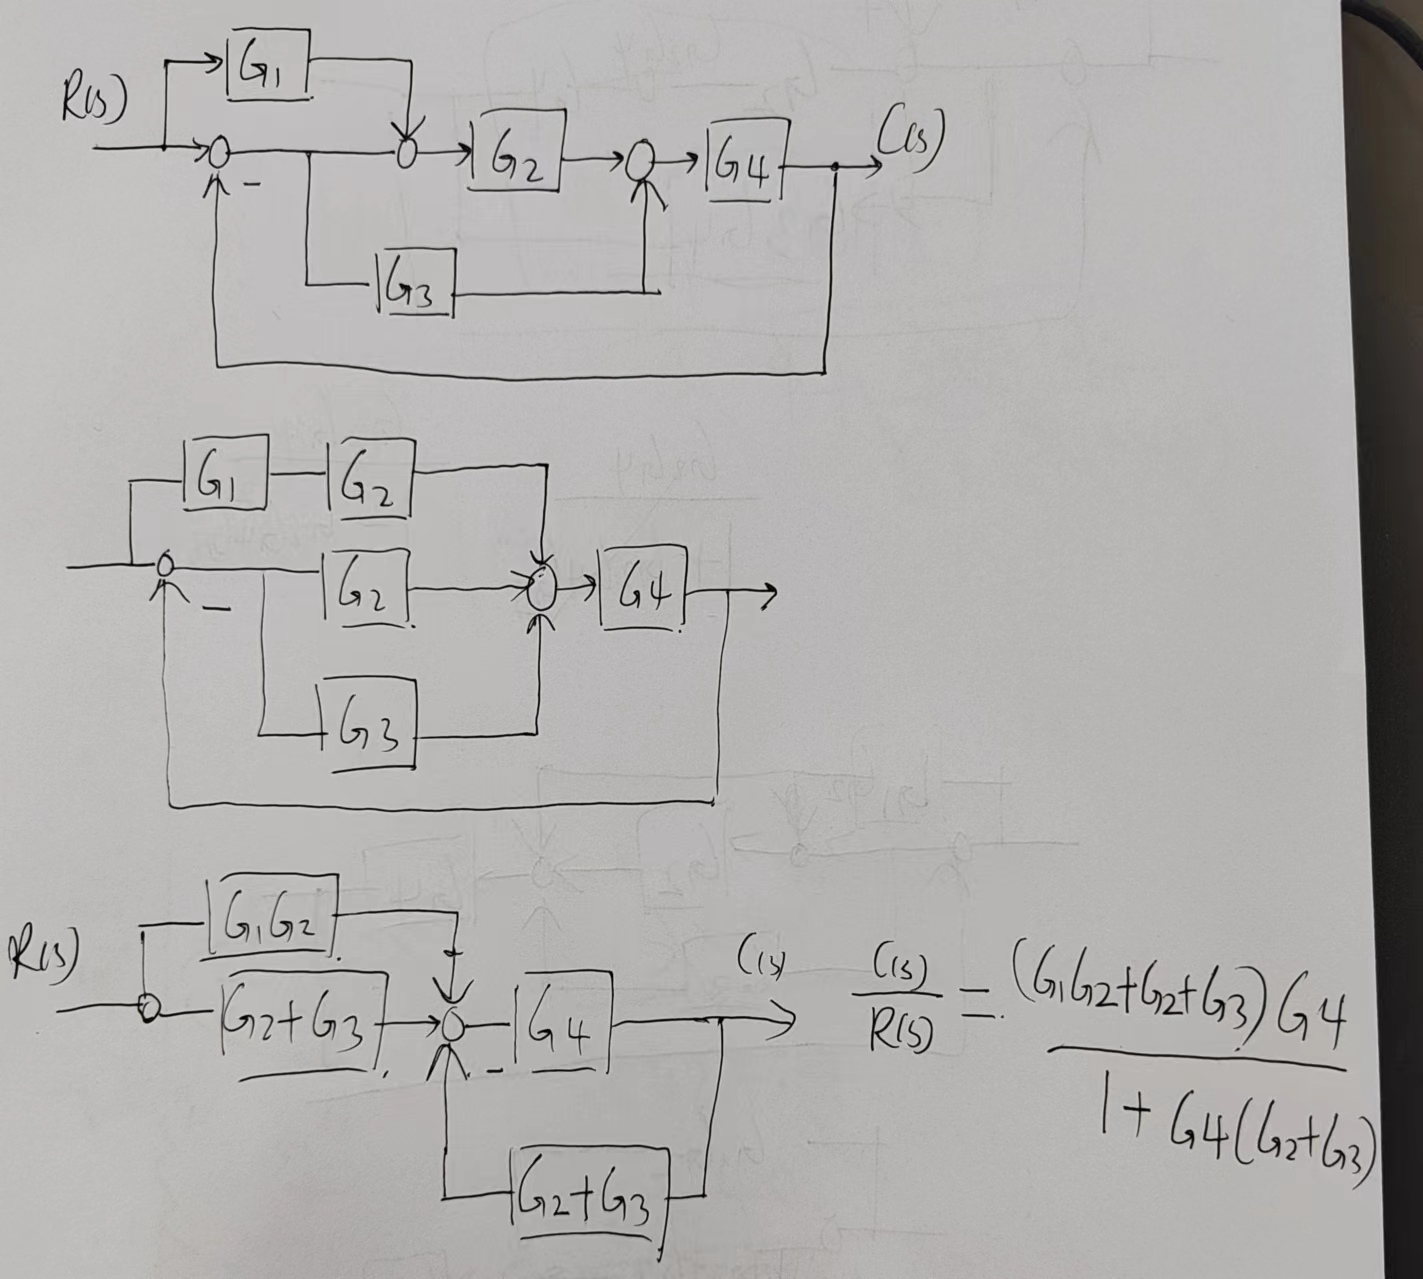 G1
R(s)
G2
G4
C(s)
-
G3
G1
G2
G2
G4
-
G3
G1G2
R(s)
G2+G3
G4
C(s)
-
G2+G3
C(s)/R(s) = (G1G2+G2+G3)G4 / 1+G4(G2+G3)